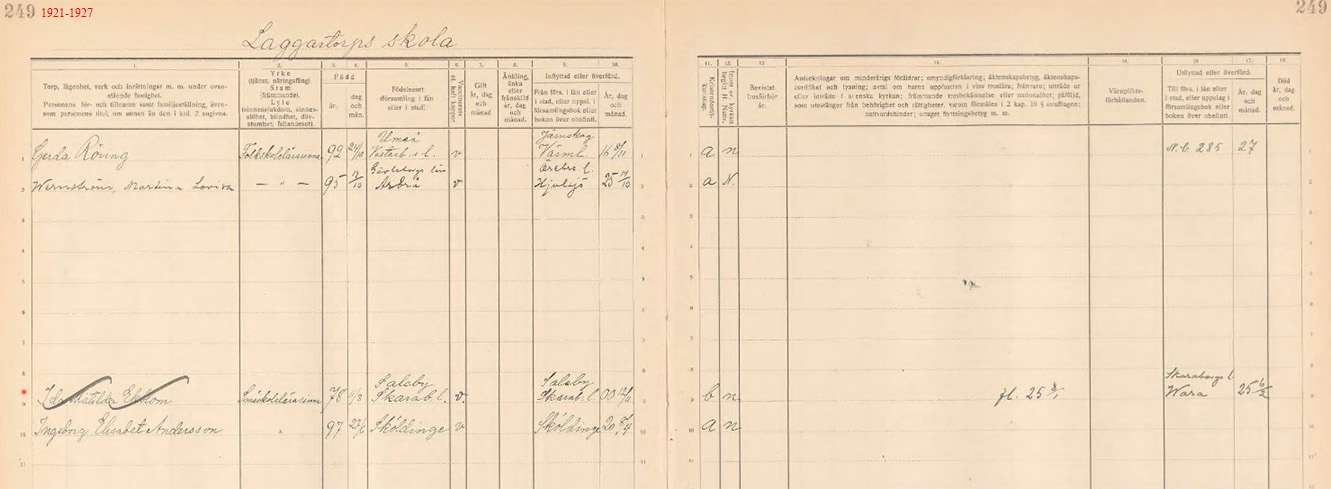 249 1921-1927 249
Laggartorps skola
1. 2. 3. 4. 5. 6. 7. 8. 9. 10. 11. 12. 13. 14. 15. 16. 17. 18.
Torp, lägenhet, verk och inrättningar m. m. under ovan-
stående fastighet.
Personens för- och tillnamn samt familjeställning, även-
som personens titel, om annan än den i kol. 2 angivna.
Yrke
(tjänst, näringsfång)
Stam
(främmande).
Lyte
(sinnessjukdom, sinnes-
slöhet, blindhet, döv-
stumhet, fallandesot).
Född
år.
dag
och
mån.
Födelseort
(församling i län
eller i stad)
Vaccinerats
et. haft koppor.
Gift
år, dag
och
månad
Änkling,
änka
eller
frånskild
år, dag
och
månad.
Inflyttad eller överförd.
Från förs. i län eller
i stad, eller uppsl. i
församlingsbok eller
boken över obefintl.
År, dag
och
månad.
Kristendoms-
kunskap.
Inom sv. kyrkan
begått H. Nattv.
Bevistat
husförhör
år.
Anteckningar om minderårigs föräldrar; omyndigförklaring; äktenskapsbetyg, äktenskaps-
certifikat och lysning; avtal om barns uppfostran i viss troslära; frånvaro; område ur
eller inträde i svenska kyrkan; främmande trosbekännelse eller nationalitet; påföljd,
som utestänger från behörighet och rättigheter, varom förmäles i 2 kap. 19 § strafflagen;
nattvardshinder; uttaget flyttningsbetyg m. m.
Värnplikts-
förhållanden.
Utflyttad eller överförd.
Till förs. i län eller
i stad, eller uppslag i
församlingsbok eller
boken över obefintl.
År, dag
och
månad.
Död
år, dag
och
månad.
1 Gerda Röning Folkskolelärarinna 92 24/10 Umeå Västerb. l. v. Järnskog Värml 16 8/11 a n N. b. 285 27
2 Wernström, Martina Lovisa — " — 95 2/10 Gävleborgs län Arbrå v Örebro l. Hjulsjö 25 14/10 a N.
9 Ida Matilda Ekblom Småskolelärarinna 78 11/3 Saleby Skarab. l. v. Saleby Skarab. l. 00 12/11 b n fl. 25 2/1 Skaraborgs l. Wara 25 6/2
10 Ingeborg Elisabet Andersson " 97 27/6 Sköldinge v Sköldinge 20 8/4 a n